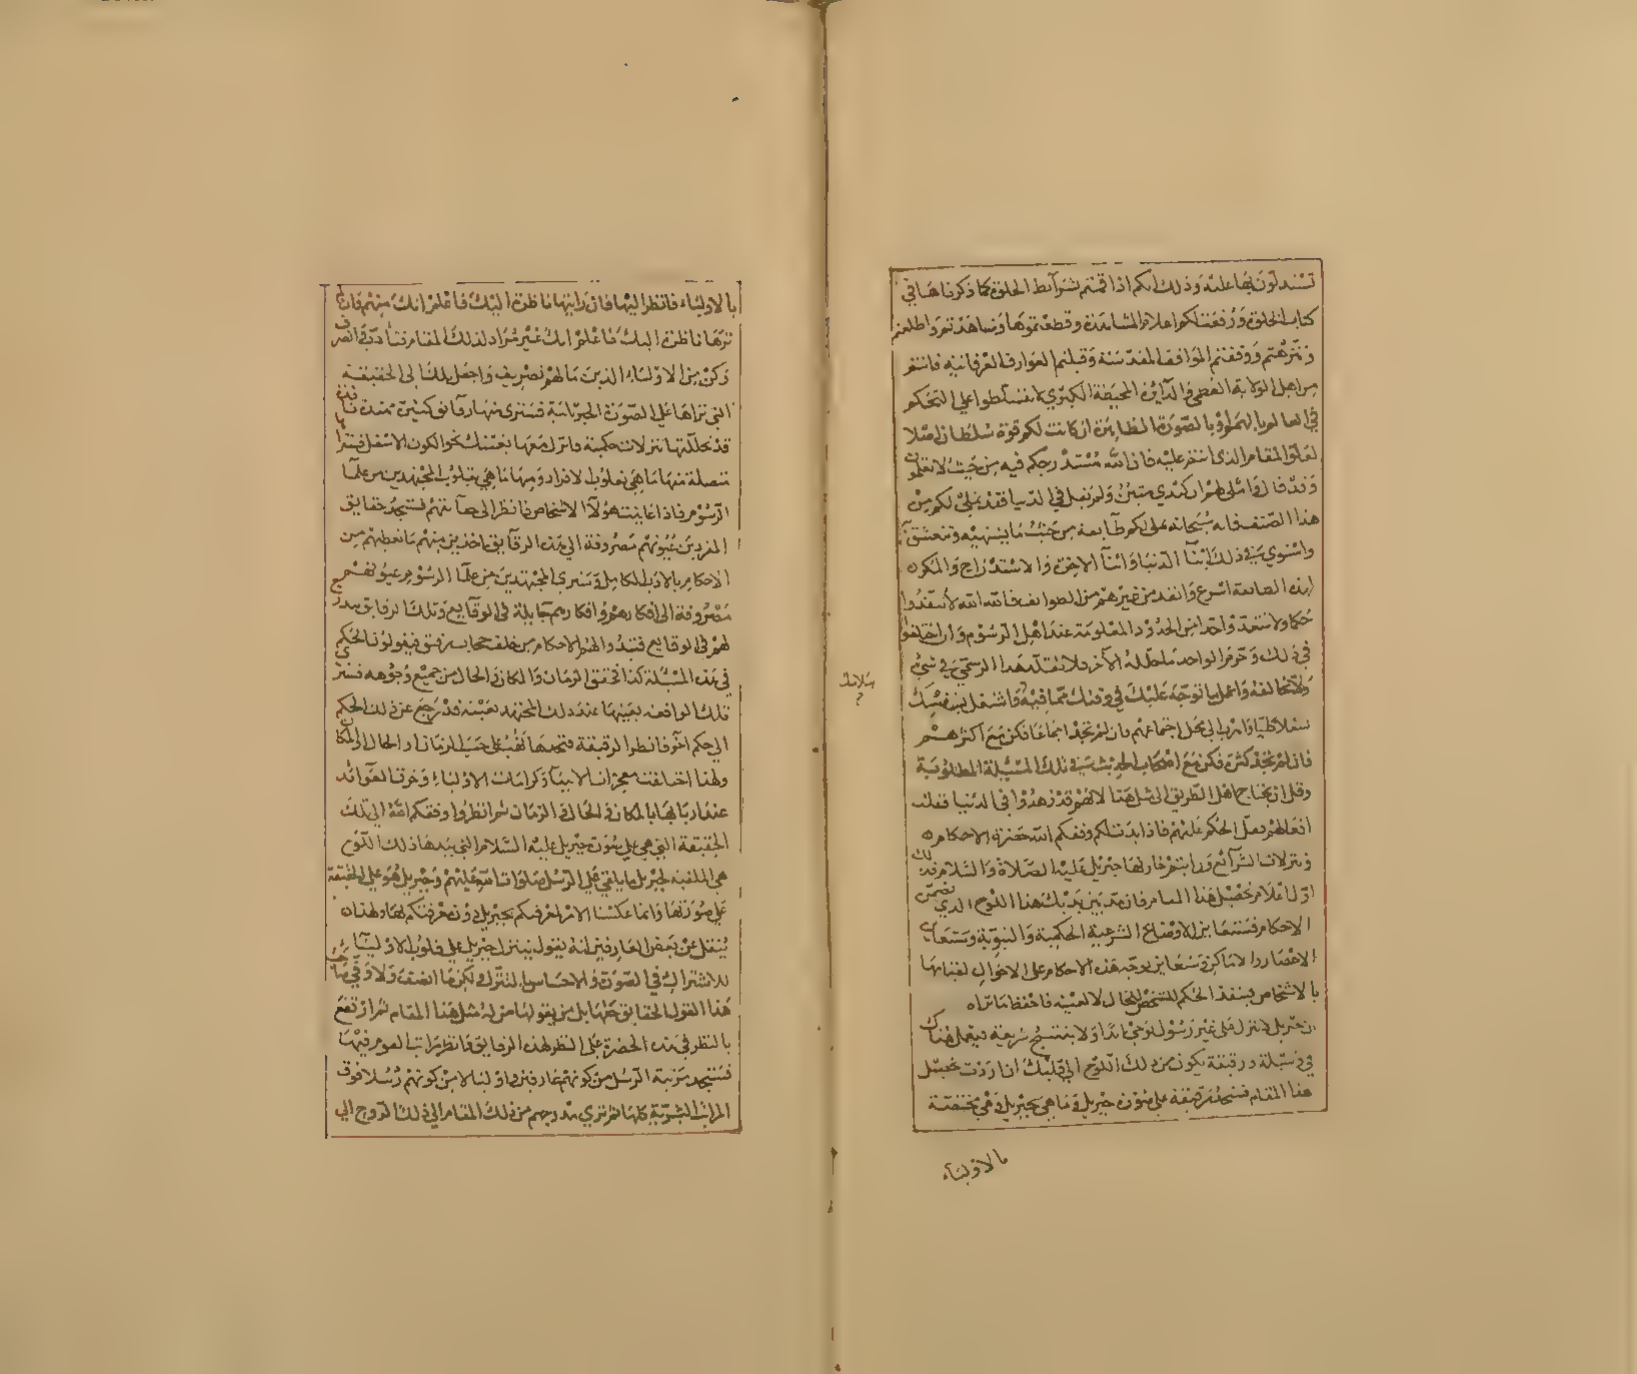 تستدلون بها عليه وذلك انكم اذا قمتم بشرآئط الخلوة كما ذكرناها في
كتاب الخلوة ورفعت لكم اعلام المشاهدة وقطعتموها وشاهدتم واطلعتم
ونزهتم ووقفتم المواقف المقدسة وقبلتم العوارف العرفانية فانتم
من اهل الولاية العظمى والدآئرة المحيطة الكبرى تسلطوا على التحكم
في العالم بالهمة او بالصورة الظاهرة ان كانت لكم قوة سلطان اصلا
لعلو المقام الذى انتم عليه فان الله مستدرجكم فيه من حيث لا تعلمون
وقد قال واملى لهم ان كيدي متين ولم يقل في الدنيا فقد يملى لكم من
هذا الصنف فانه سبحانه يملى لكل طآيفة من حيث ما تشتهيه وتتعشق به
واستوى في ذلك ابنآ الدنيا وابنآ الاخرة والاستدراج والمكر
لهذه الطائفة اسرع وانفذ من غيرهم من الطوائف فالله الله لا تنقذوا
حكما ولا تتعدوا حدا من الحدود المعلومة عند اهل الرسوم وان اختلفوا
في ذلك وحرم الواحد ما حلله الآخر فلا تقلد هذا الرسمي في شئ
ولا تخالفه واعمل بما توجه عليك في وقتك مما فيه واشتغل بنفسك
سلامتك
شغلا كليا واهرب الى محل اجماعهم فان لم تجد اجماعا فكن مع اكثرهم
فان لم تجد كثرة فكن مع اصحاب الحديث في تلك المسئلة المطلوبة
وقل ان يحتاج اهل الطريق الى مثل هذا لانهم قد زهدوا في الدنيا فقلت
افعالهم فقل الحكم عليهم فاذا بدت لكم وفقكم الله حضرة الاحكام
وتنزلات الشرآئع ورايتم خارجها جبريل عليه الصلاة والسلام فذلك
اول اعلام تحصيل هذا المقام فانه بين يديك هذا اللوح الذي يتضمن
الاحكام فستعاين الاوضاع الشرعية الحكمية والنبوية وستعاين
الاعصار والاماكن وستعاين توجه هذه الاحكام على الاحوال لقيامها
بالاشخاص فينفذ الحكم للشخص للحال لا لعينه فاحفظ ما تراه
ان جبريل لا ينزل على غير رسول بوحي ابدا ولا بنسخ شريعة فيعمل هناك
في مسئلة ورقيقة تكون من ذلك اللوح الى قلبك ان اردت تحصيل
هذا المقام فستجد رقيقة على صورة جبريل وما هي بجبريل وهي مختصة
بالاوليآء
بالاوليآء فانظر اليها فان رايتها ناظرة اليك فاعلم انك منهم فان لم
ترها ناظرة اليك فاعلم انك غير مراد لذلك المقام فتادب في التصرف
وكن من الاوليآء الذين مالهم تصريف واجعل بالك الى الحقيقة
التي تراها على الصورة الجبرائلية فسترى منها رقآئق كثيرة ممتدة
قد تخللتها تنزلات حكمية فانزل معها بعينك نحو الكون الاسفل فستراها
متصلة منها ما هي بقلوب الافراد ومنها ما هي بقلوب المجتهدين من علمآء
الرسوم فاذا عاينت هؤلآء الاشخاص فانظر الى حالتهم فستجد حقايق
المفردين عيونهم مصروفة الى هذه الرقآئق ناخذين منهم ما تعطيهم من
الاحكام بالادب الكامل وسترى المجتهدين من علمآء الرسوم عيونهم
مصروفة الى افكارهم وافكارهم جآيلة في الوقآيع وتلك الرقايق
لهم في الوقايع فتبدوا لهم الاحكام من خلف حجاب رقيق فيقولون الحكم
في هذه المسئلة كذا تحقق الزمان والمكان والحال من جميع وجوهه
تلك الواقعة بعينها عند ذلك المجتهد بعينه قد رجع عن ذلك الحكم
الى حكم آخر فانظر الرقيقة فتجدها تنقلب على حسب الزمان او الحال او المكان
ولهذا اختلفت معجزات الانبيآء وكرامات الاوليآء وخرق العوآئد
عند اربابها بالمكان والحال في الزمان ثم انظروا وفقكم الله الى تلك
الحقيقة التي هي على صورة جبريل عليه السلام التي بيدها ذلك اللوح
هي الملقية لجبريل ما يلقي على الرسل صلوات الله عليهم وجبريل هو على الحقيقة
على صورتها وانما عكسنا الامر لمعرفتكم بجبريل دون معرفتكم بها ولهذا
ينقل عن بعض العارفين انه يقول بتنزل جبريل على قلوب الاوليآء
للاشتراك في الصورة والاحساس بالتنزل ولكن ما انصف ولا وفى
هذا القول الحقايق حقها بل من يقولها من له مثل هذا المقام ثم ارتفع
بالنظر في هذه الحضرة على النظر لهذه الرقايق وانظر مراتب القوم فيها
فستجد مرتبة الرسل من كونهم عارفين واوليآء لا من كونهم رسلا فوق
المراتب البشرية كلها ثم ترى تدرجهم من ذلك المقام الى ذلك الروح الى